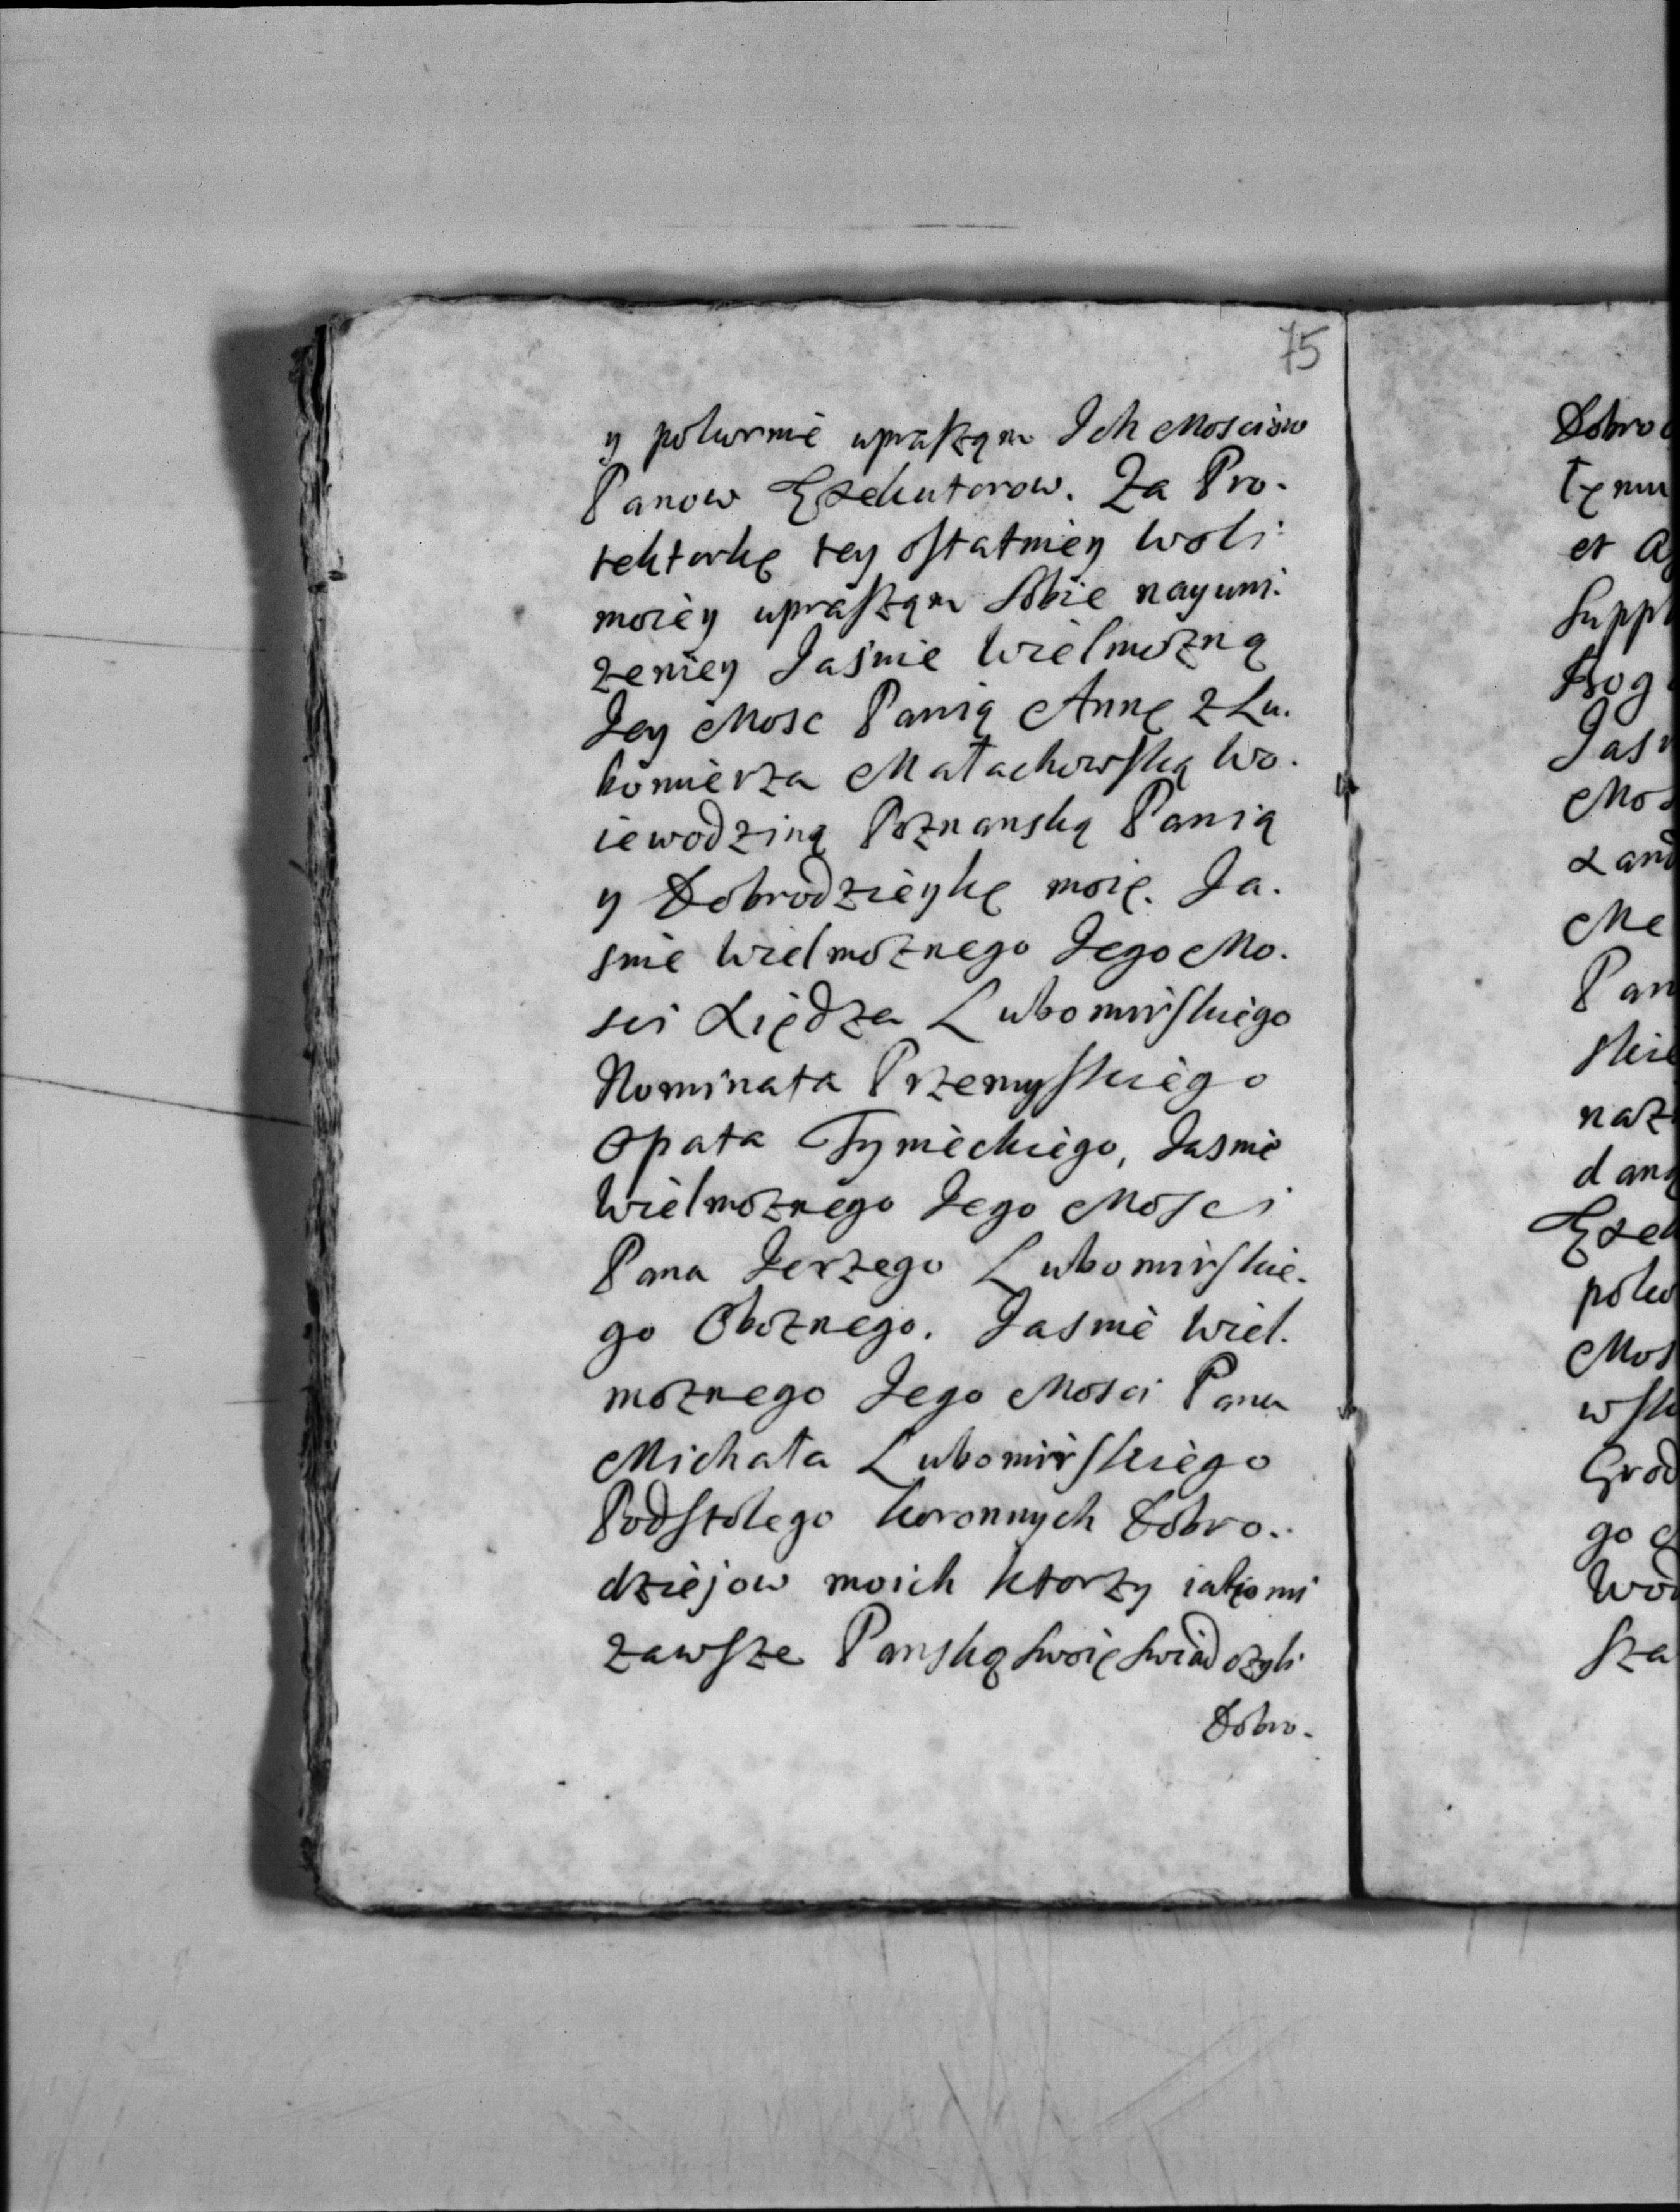 75
y pokornie upraszam Ich Mosciow
Panow Exekutorow. Za Pro-
tektorkę tey ostatniey woli
moiey upraszam sobie nayuni-
żeniey Jaśnie Wielmożną
Jey Mosc Panią Annę z Lu-
bomierza Małachowską Wo-
iewodziną Poznanską Panią
y Dobrodzieykę moię. Ja-
snie Wielmożnego Jego Mo-
sci Xiędza Lubomirskiego
Nominata Przemyskiego
Opata Tynieckiego, Jasnie
Wielmożnego Jego Mosci
Pana Jerzego Lubomirskie-
go Obożnego. Jasnie Wiel-
możnego Jego Mosci Pana
Michała Lubomirskiego
Podstolego koronnych Dobro-
dziejow moich ktorzy iako mi
zawsze Panską swoię swiadczyli
Dobro-
et
Me